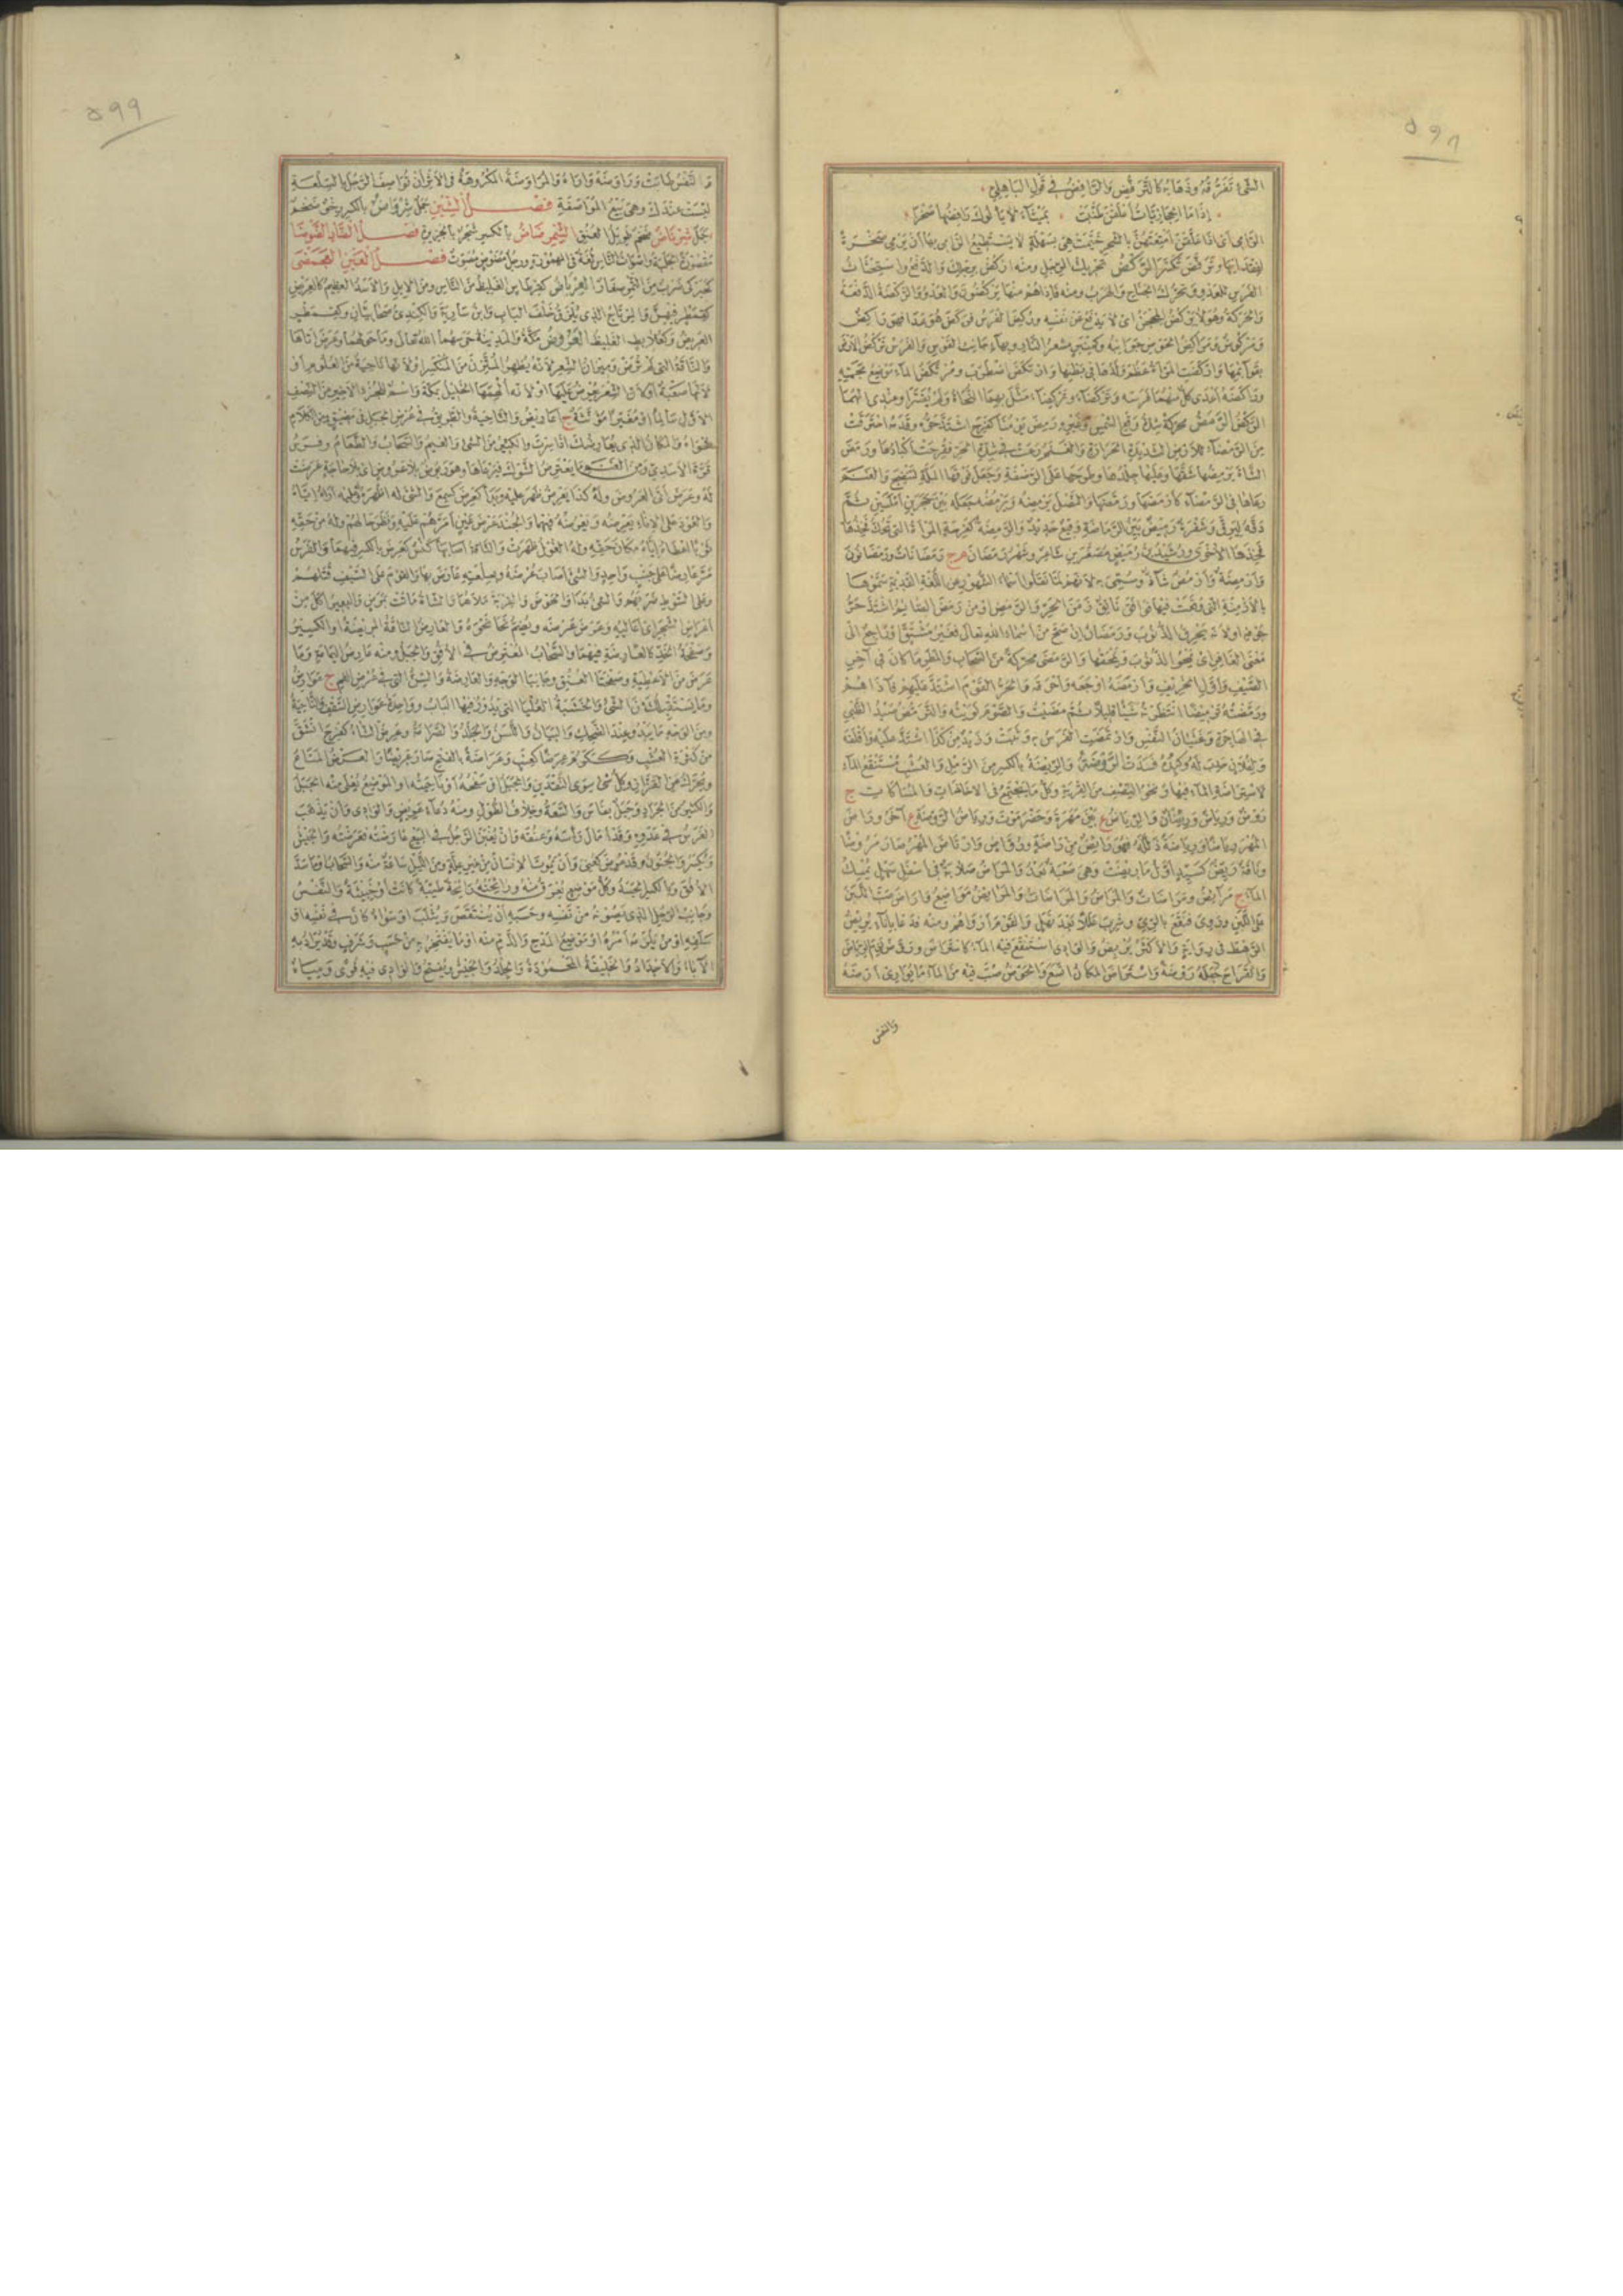 ٥٩٨
الشيء تفرقه وذهابه كالترفض والرافض في قول الباهلي
إذا ما الحجازيات أعلقن طنبت بميثاء لا يألوك رافضها صخرا
الرامي أي إذا علقن أمتعتهن بالشجر خيمت هي بسهلة لا يستطيع الرامي بها أن يرمي صخرة
لفقدانها وترفض تكسر الركض تحريك الرجل ومنه اركض برجلك والدفع واستحثاث
الفرس للعدو وتحرك الجناح والهرب ومنه فإذا هم منها يركضون والعدو والركضة الدفعة
والحركة وهو لا يركض المحجن أي لا يدفع عن نفسه وركض الفرس فركض هو عدا فهو راكض
وركوض ومراكض الحوض جوانبه وكمنبر مسعر النار وبهاء جانب القوس والفرس تركض الأرض
بقوائمها واركضت المرأة عظم ولدها في بطنها وارتكض اضطرب ومرتكض الماء موضع مجمه
وراكضه أعدى كل منهما فرسه وتركضاء وتركضاء مثل بهما النحاة ولم يفسرا وعندي أنهما
الركض الرمض محركة شدة وقع الشمس وغيره رمض يومنا كفرح اشتد حره وقدمه احترقت
من الرمضاء للأرض الشديدة الحرارة والغنم رعت في شدة الحر فقرحت أكبادها ورمض
الشاة يرمضها شقها وعليها جلدها وطرحها على الرضفة وجعل فوقها الملة لتنضج والغنم
رعاها في الرمضاء كأرمضها ورمضها والنصل يرمضه ويرمضه جعله بين حجرين أملسين ثم
دقه ليرق وشفرة رميض بين الرماضة وقيع حديد والرمضة كفرحة المرأة التي تحك فخذها
فخذها الأخرى ورشيد بن رميض مصغرين شاعر وشهر رمضان م ج رمضانات ورمضانون
وأرمضة وأرمض شاذ وسمي به لأنهم لما نقلوا أسماء الشهور عن اللغة القديمة سموها
بالأزمنة التي وقعت فيها فوافق ناتق زمن الحر والرمض أو من رمض الصائم اشتد حر
جوفه أو لأنه يحرق الذنوب ورمضان إن صح من أسماء الله تعالى فغير مشتق أو راجع إلى
معنى الغافر أي يمحو الذنوب ويمحقها والرمضي محركة من السحاب والمطر ما كان في آخر
الصيف وأول الخريف وأرمضه أوجعه وأحرقه والحر القوم اشتد عليهم فآذاهم
ورمضته ترميضا انتظرته شيئا قليلا ثم مضيت والصوم نويته والترمض صيد الظبي
في الهاجرة وغثيان النفس وارتمضت الفرس به وثبت وزيد من كذا اشتد عليه وأقلقه
ولفلان حدب له وكبده فسدت الروضة والريضة بالكسر من الرمل والعشب مستنقع الماء
لاستراضة الماء فيها ونحو النصف من القربة وكل ماء يجتمع في الإخاذات والمساكات ج
روض ورياض وريضان والرياض ع بين مهرة وحضرموت ورياض الروضة ع آخر وراض
المهر رياضا ورياضة ذلله فهو رائض من راضة ورواض وارتاض المهر صار مروضا
وناقة ريض كسيد أول ما ريضت وهي صعبة بعد والمراض صلابة في أسفل سهل تمسك
الماء ج مرائض ومراضات والمراض والمراضات والمرائض مواضع وأراض صب اللبن
على اللبن وروي فنقع بالري وشرب عللا بعد نهل والقوم أرواهم ومنه فدعا بإناء يريض
الرهط في رواية والأكثر يربض والوادي استنقع فيه الماء كاستراض وروض لزم الرياض
والقراح جعله روضة واستراض المكان اتسع والحوض صب فيه من الماء ما يواري أرضه
والنفس
٥٩٩
والنفس طابت وراوضه داراه والمراوضة المكروهة في الأثر أن تواصف الرجل بالسلعة
ليست عندك وهي بيع المواصفة فصل الشين جمل شرواض بالكسر رخو ضخم
جمل شرناض ضخم طويل العنق الشمرضاض بالكسر شجر بالجزيرة فصل الضاد الضوضا
مقصورة الجلبة وأصوات الناس لغة في المهموزة ورجل مضوض مصوت فصل العين العجمضى
كحبركى ضرب من التمر صغار العرباض كقرطاس الغليظ من الناس ومن الإبل والأسد العظيم كالعربض
كقمطر فيهن والمرتاج الذي يلزق خلف الباب وابن سارية والكندي صحابيان وكقمطر
العريض وكعلابط الغليظ العروض مكة والمدينة حرسهما الله تعالى وما حولهما وعرض أتاها
والناقة التي لم ترض وميزان الشعر لأنه يظهر المتزن من المنكسر أو لأنها ناحية من العلوم أو
لأنها صعبة أو لأن الشعر يعرض عليها أو لأنه ألهمها الخليل بمكة واسم للجزء الأخير من النصف
الأول سالما أو مغيرا مؤنثة ج أعاريض والناحية والطريق في عرض الجبل في مضيق ومن الكلام
فحواه والمكان الذي يعارضك إذا سرت والكثير من الشيء والغيم والسحاب والطعام وفرس
قرة الأسدي ومن الغنم ما يعترض الشوك فيرعاها وهو ربوض بلا عروض أي بلا حاجة عرضت
له وعرض أتى العروض وله كذا يعرض ظهر عليه وبدا كعرض كسمع والشيء له أظهره له وعليه أراه إياه
والعود على الإناء يعرضه ويعرضه فيهما والجند عرض عين أمرهم عليه ونظر حالهم وله من حقه
ثوبا أعطاه إياه مكان حقه وله الغول ظهرت والناقة أصابها كسر كعرض بالكسر فيهما والفرس
مر عارضا على جنب واحد والشيء أصاب عرضه وبسلعته عارض بها والقوم على السيف قتلهم
وعلى السوط ضربهم والشيء بدا والحوض والقربة ملأهما والشاة ماتت بمرض والبعير أكل من
أعراض الشجر أي أعاليه وعرض عرضه ويضم نحا نحوه والعارض الناقة المريضة أو الكسير
وصفحة الخد كالعارضة فيهما والسحاب المعترض في الأفق والجبل ومنه عارض اليمامة وما
عرض من الأعطية وصفحتا العنق وجانبا الوجه والعارضة والسن التي في عرض الفم ج عوارض
وما يستقبلك من الشيء والخشبة العليا التي يدور فيها الباب وواحدة عوارض السقف والناحية
ومن الوجه ما يبدو عند الضحك والبيان واللسن والجلد والصرامة وعرض الشاء كفرح انشق
من كثرة العشب وككرم عرضا كعنب وعراضة بالفتح صار عريضا والعرض المتاع
ويحرك عن القزاز وكل شيء سوى النقدين والجبل أو سفحه أو ناحيته أو الموضع يعلى منه الجبل
والكثير من الجراد وجبل بفاس والسعة وخلاف الطول ومنه دعاء عريض والوادي وأن يذهب
الفرس في عدوه وقد أمال رأسه وعنقه وأن يغبن الرجل في البيع عارضته فعرضته والجيش
ويكسر والجنون وقد عرض كعني وأن يموت الإنسان من غير علة ومن الليل ساعة منه والسحاب أو ما سد
الأفق وبالكسر الجسد وكل موضع يعرق منه ورائحته رائحة طيبة كانت أو خبيثة والنفس
وجانب الرجل الذي يصونه من نفسه وحسبه أن ينتقص ويثلب أو سواء كان في نفسه أو
سلفه أو من يلزمه أمره أو موضع المدح والذم منه أو ما يفتخر به من حسب وشرف وقد يراد به
الآباء والأجداد والخليقة المحمودة والجلد والجيش ويفتح والوادي فيه قرى ومياه